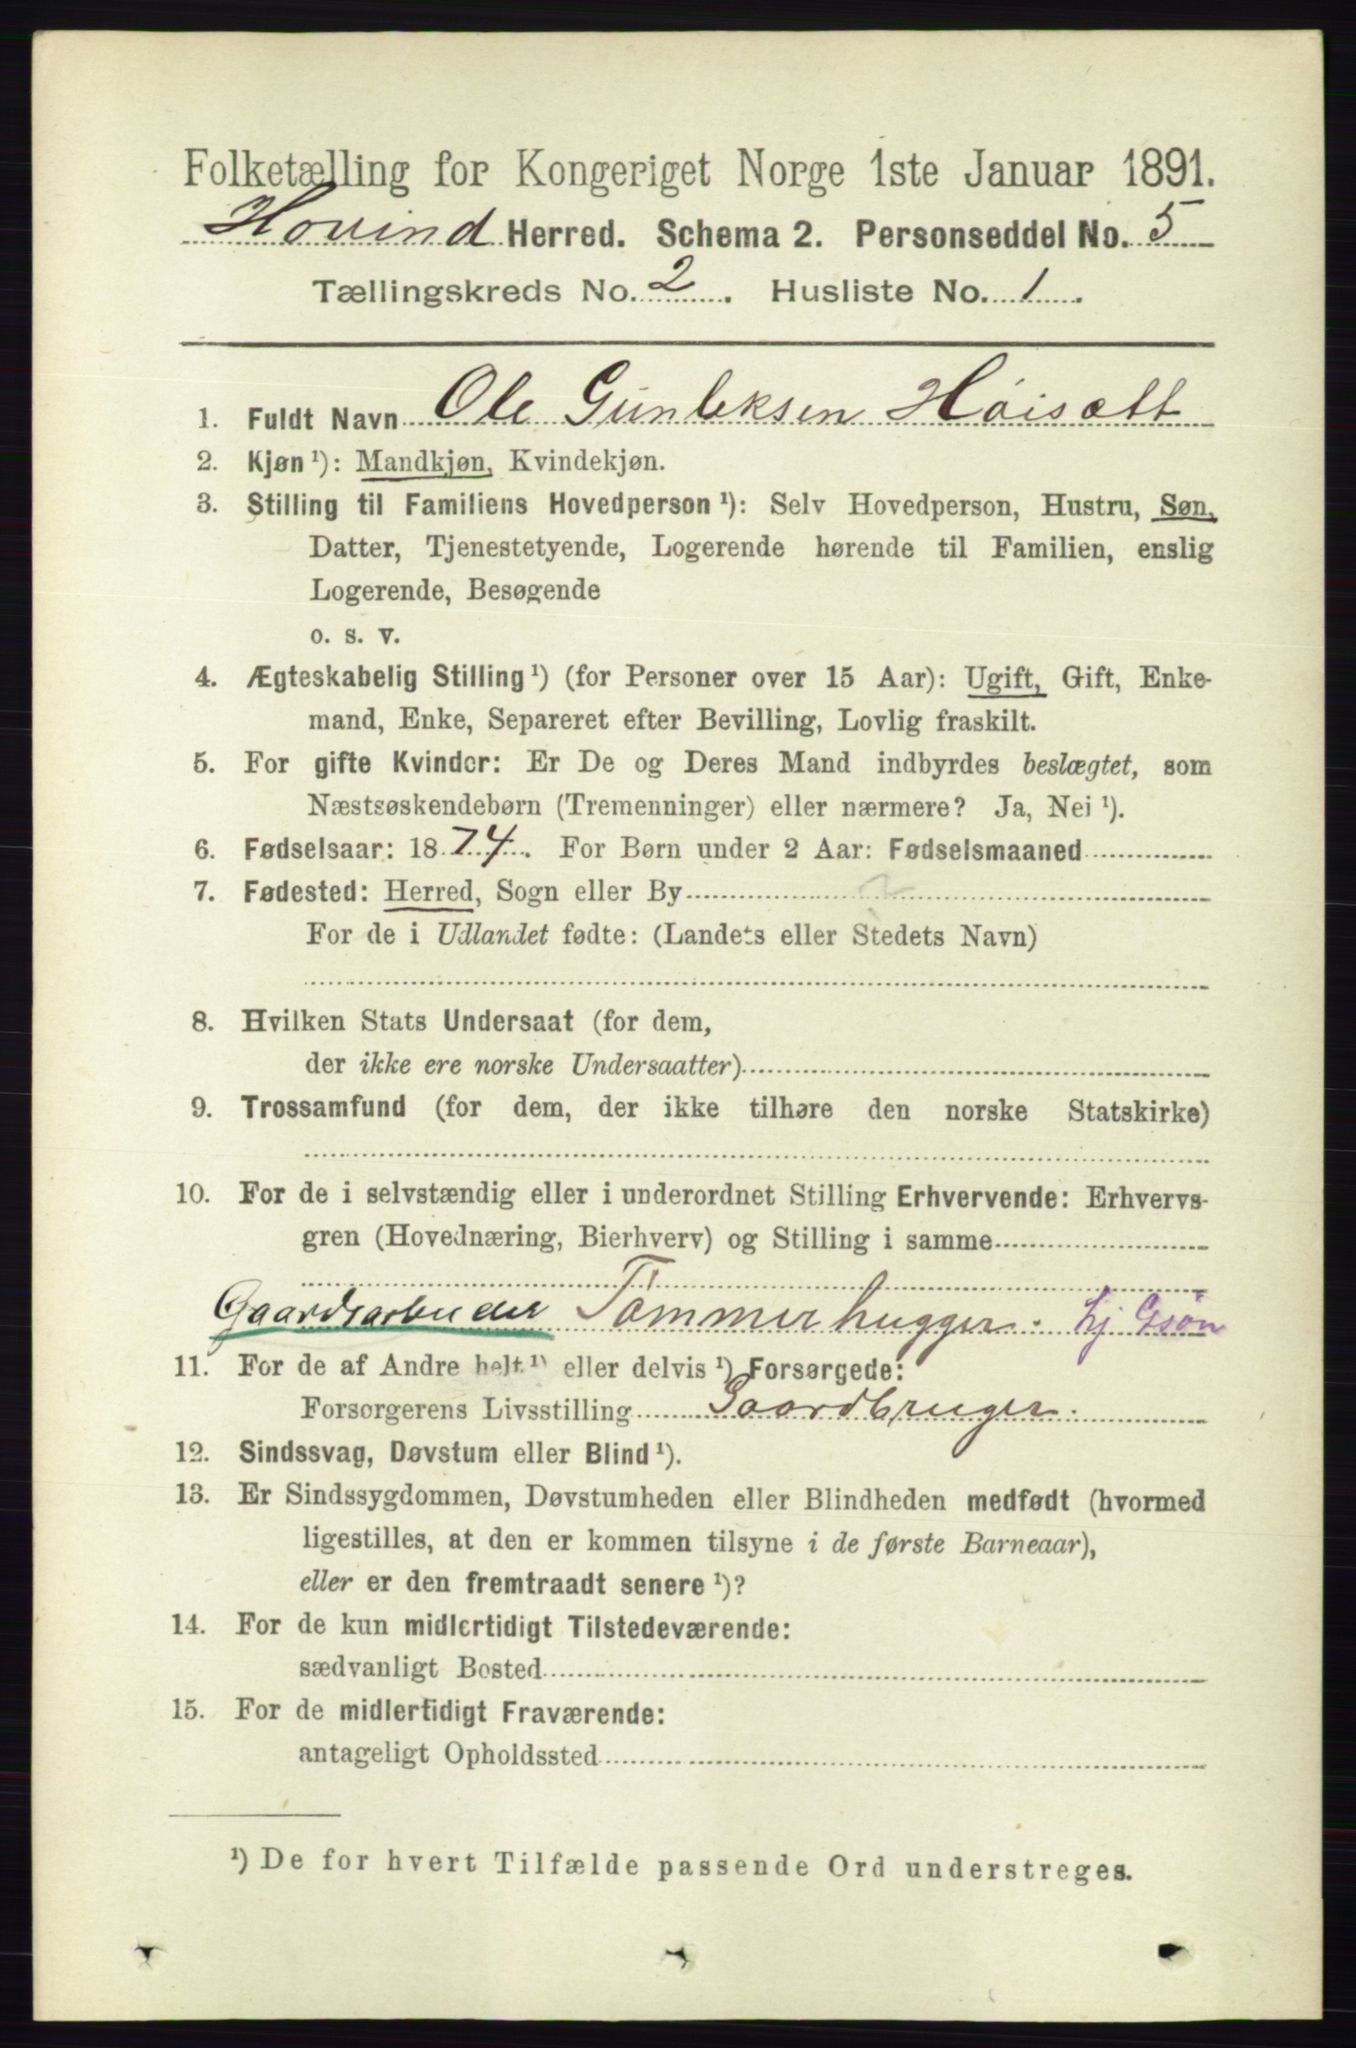 Folketælling for Kongeriget Norge 1ste Januar 1891.
Hovind Herred. Schema 2. Personseddel No. 5
Tællingskreds No. 2. Husliste No. 1.
1. Fuldt Navn Ole Gunleksen Høisætt
2. Kjøn ¹): Mandkjøn, Kvindekjøn.
3. Stilling til Familiens Hovedperson ¹): Selv Hovedperson, Hustru, Søn,
Datter, Tjenestetyende, Logerende hørende til Familien, enslig
Logerende, Besøgende
o. s. v.
4. Ægteskabelig Stilling ¹) (for Personer over 15 Aar): Ugift, Gift, Enke-
mand, Enke, Separeret efter Bevilling, Lovlig fraskilt.
5. For gifte Kvinder: Er De og Deres Mand indbyrdes beslægtet, som
Næstsøskendebørn (Tremenninger) eller nærmere? Ja, Nei ¹).
6. Fødselsaar: 1874. For Børn under 2 Aar: Fødselsmaaned
7. Fødested: Herred, Sogn eller By
For de i Udlandet fødte: (Landets eller Stedets Navn)
8. Hvilken Stats Undersaat (for dem,
der ikke ere norske Undersaatter)
9. Trossamfund (for dem, der ikke tilhøre den norske Statskirke)
10. For de i selvstændig eller i underordnet Stilling Erhvervende: Erhvervs-
gren (Hovednæring, Bierhverv) og Stilling i samme
Gaardsarbeider Tømmerhugger. hj Gsøn
11. For de af Andre helt ¹) eller delvis ¹) Forsørgede:
Forsørgerens Livsstilling Gaardbruger.
12. Sindssvag, Døvstum eller Blind ¹).
13. Er Sindssygdommen, Døvstumheden eller Blindheden medfødt (hvormed
ligestilles, at den er kommen tilsyne i de første Barneaar),
eller er den fremtraadt senere ¹)?
14. For de kun midlertidigt Tilstedeværende:
sædvanligt Bosted
15. For de midlertidigt Fraværende:
antageligt Opholdssted
¹) De for hvert Tilfælde passende Ord understreges.